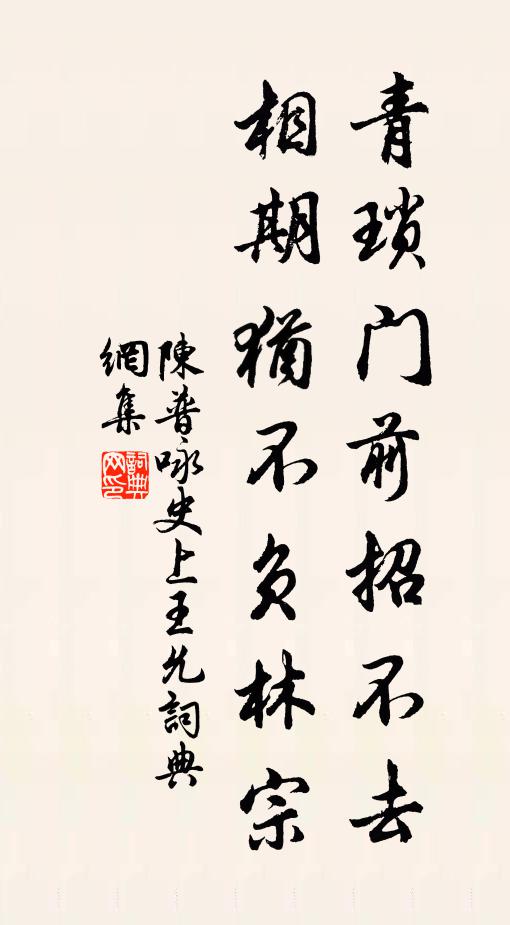 青瑣門前招不去
相期猶不負林宗
陳普咏史上王允詞典
網集
詞典
网印